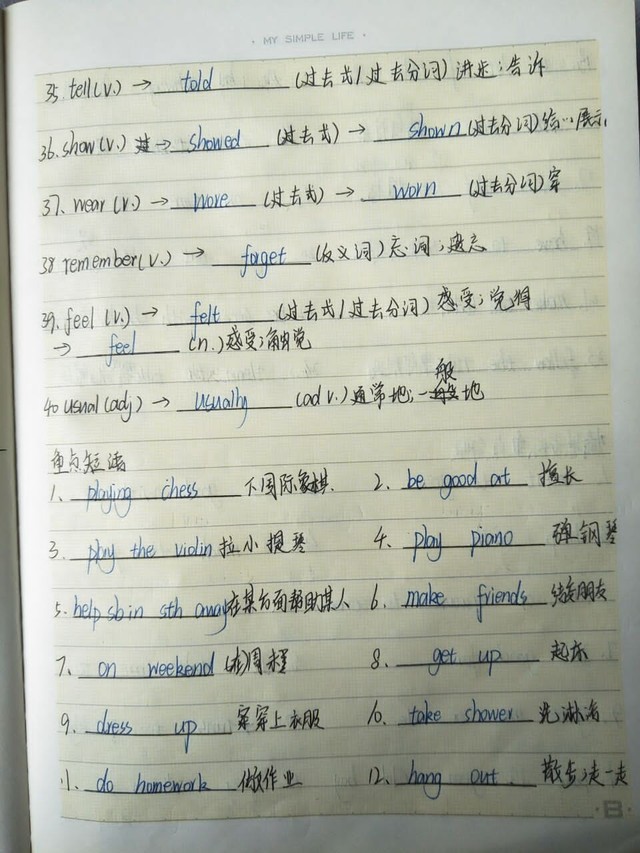 · MY SIMPLE LIFE ·
35. tell(v.) → told (过去式/过去分词) 讲述;告诉
36. show(v.) → showed (过去式) → shown (过去分词) 给…展示
37. wear(v.) → wore (过去式) → worn (过去分词) 穿
38. remember(v.) → forget (反义词) 忘词;遗忘
39. feel (v.) → felt (过去式/过去分词) 感受;觉得
→ feel (n.) 感受;触觉
40 usual(adj) → usually (adv.) 通常地;一般地
重点短语
1. playing chess 下国际象棋 2. be good at 擅长
3. play the violin 拉小提琴 4. play piano 弹钢琴
5. help sb in sth 在某方面帮助某人 6. make friends 结交朋友
7. on weekend (在)周末 8. get up 起床
9. dress up 穿上衣服 10. take shower 洗淋浴
11. do homework 做作业 12. hang out 散步;走一走
B